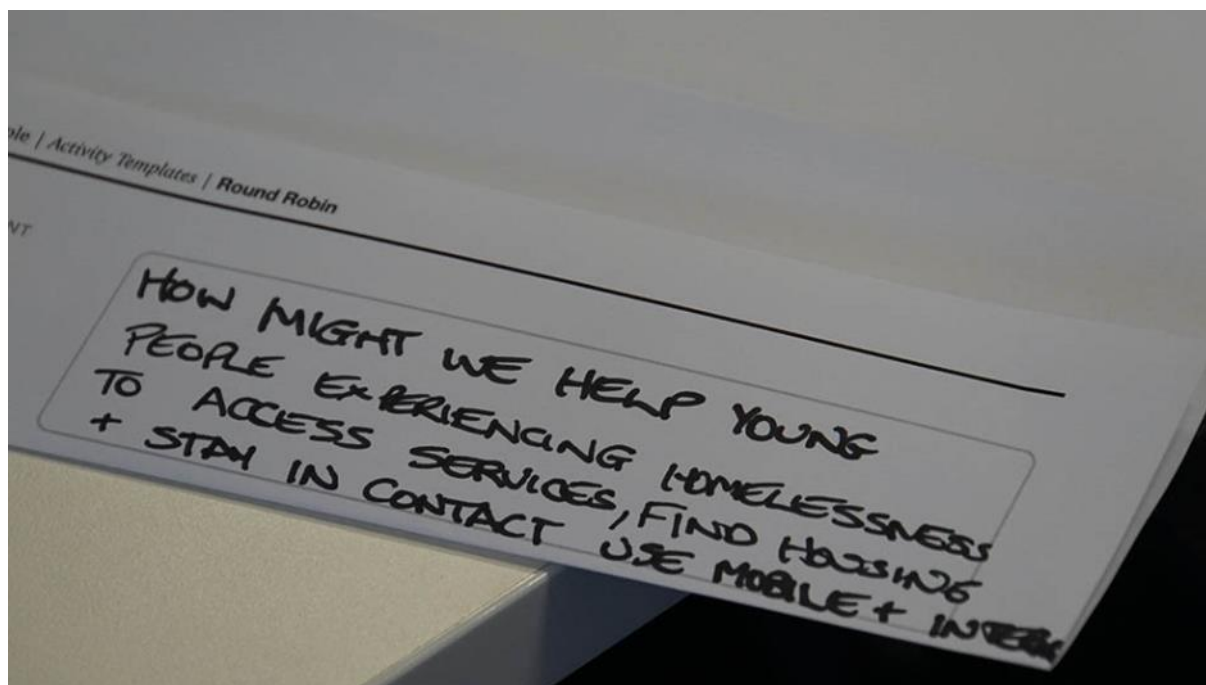 | Activity Templates | Round Robin
HOW MIGHT WE HELP YOUNG
PEOPLE EXPERIENCING HOMELESSNESS
TO ACCESS SERVICES, FIND HOUSING
+ STAY IN CONTACT USE MOBILE +